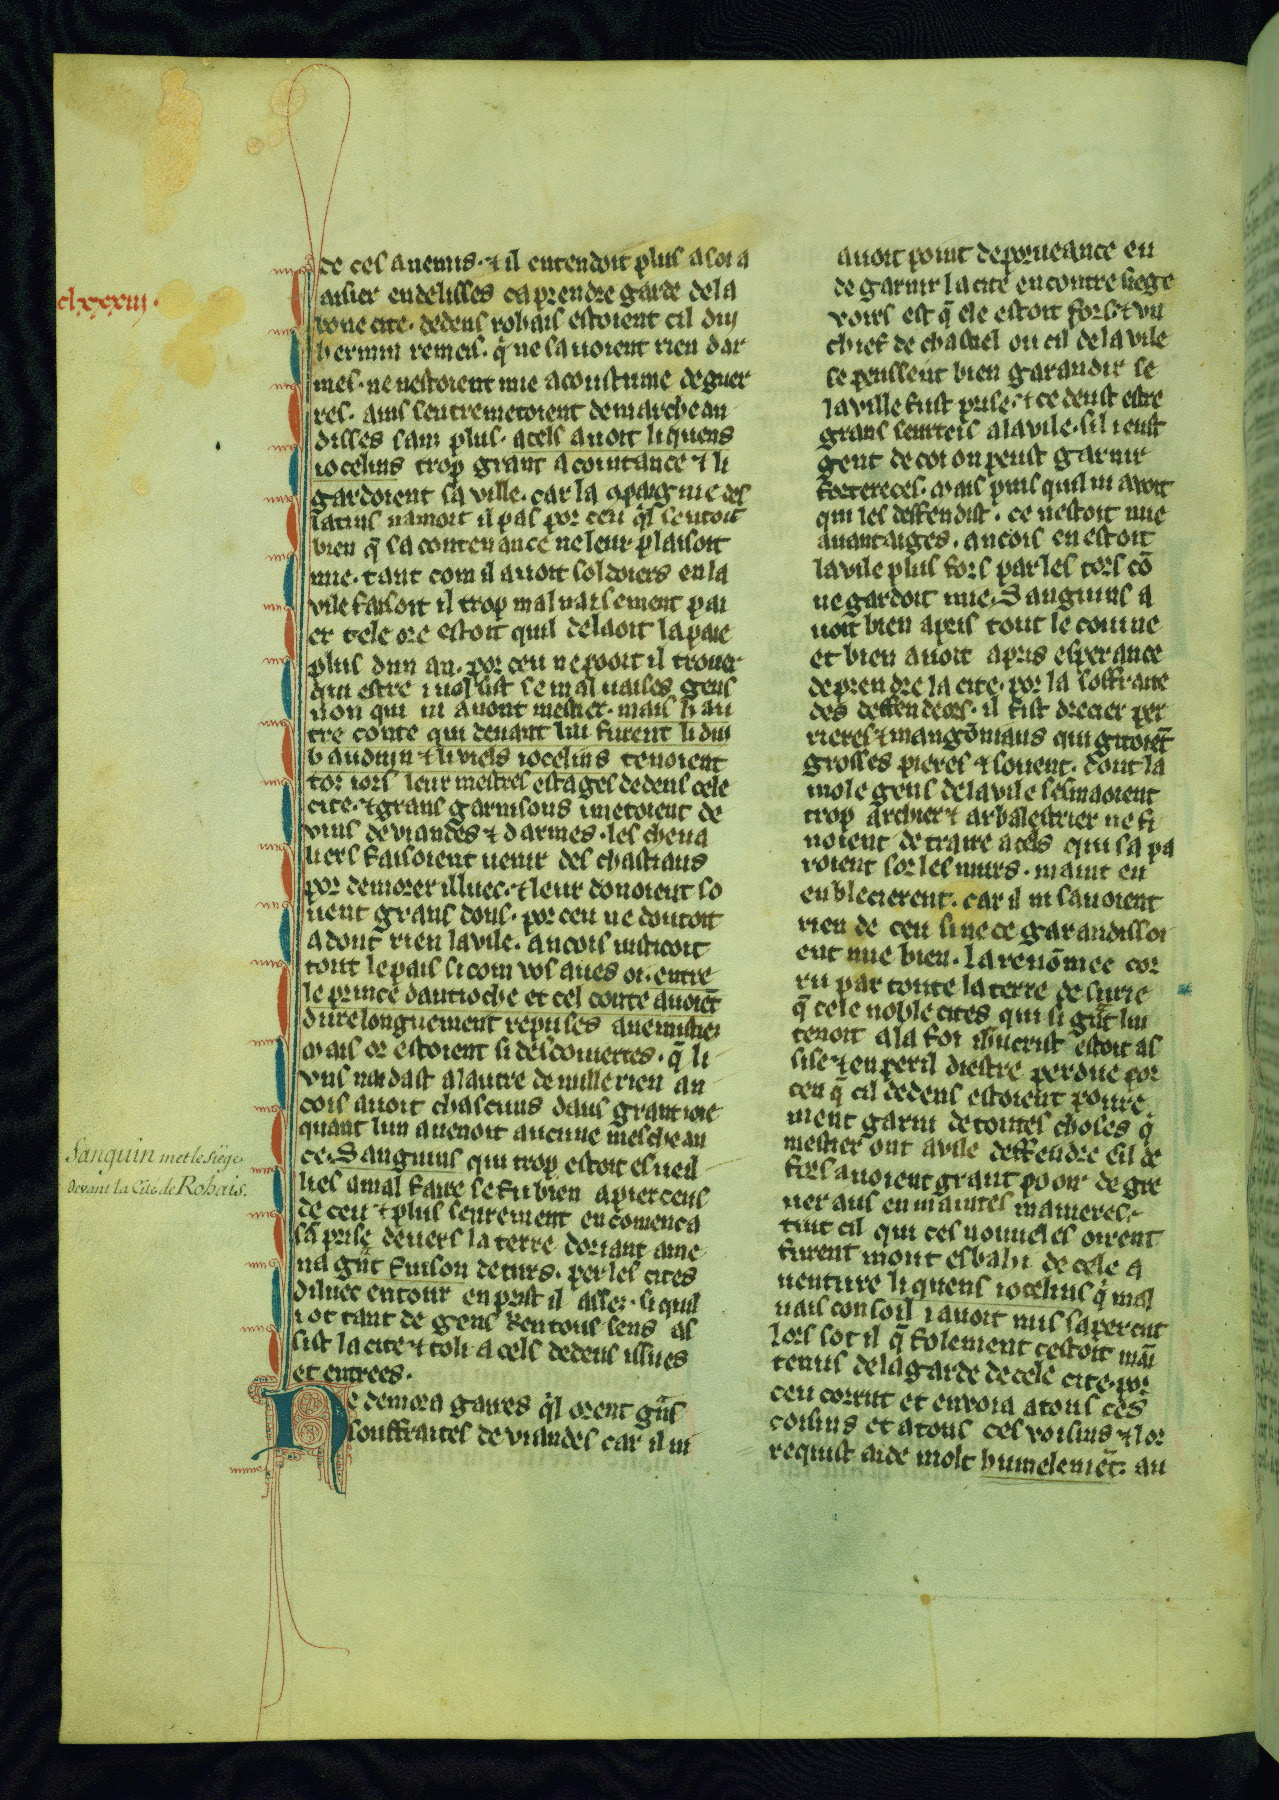 clxxxiii.
de ces auenus. ⁊ il entendoit plus a soi a
aisier en delisses ca prendre garde de la
bone cite. dedens rohais estoient cil dou
hermin remeis. q̃ ne sauoient rien dar
mes. ne nestoient mie acoustume de guer
res. ains sentremetoient de marchean
disses sanz plus. a cels auoit li quens
iocelins trop grant acointance ⁊ li
gardoient sa ville. car la cōpaignie des
latins namoit il pas por ceu q̃l sentoit
bien q̃ sa contenance ne leur plaisoit
mie. tant com il auoit soldoiers en la
vile faisoit il trop maluaisement pai
er tele ore estoit quil delaoit la paie
plus dun an. por ceu ne pooit il trouer
qui estre i uolsist se maluaises gens
non qui ni auont mestier. mais li au
tre conte qui deuant lui furent li dui
bauduin ⁊ li viels iocelins tenoient
toz iors leur mestres estages dedens cele
cite. ⁊ grans garnisons i metoient de
vins de viandes ⁊ darmes. les cheua
liers faisoient uenir des chastiaus
por demorer illuec. ⁊ leur donoient so
uent grans dons. por ceu ne doutoit
adont rien la vile. ancois iusticoit
tout le pais si com vos aues oi. entre
le prince dantioche et cel conte auoiēt
dure longuement repuses anemisties
mais or estoient si descouuertes. q̃ li
vns naidast a lautre de nulle rien an
cois auoit chascuns dans grant ioie
quant lun auenoit aucune meschean
ce. Sanguins qui trop estoit esueil
lies a mal faire se fu bien aperceus
de ceu ⁊ plus seurement en comenca
sa prise deuers la terre doriant ame
na gñt fuison de turs. per les cites
diluec entour en prist il asses. si quil
i ot tant de gens ken tous sens as
sist la cite ⁊ toli a cels dedens issues
et entrees.
Ne demora gaires q̃l orent gñs
souffraites de viandes car il ni
Sanquin met le siege
devant la Cité de Rohais.
auoit point de porueance en
de garnir la cite encontre siege
voirs est q̃ ele estoit fors. ⁊ vn
chief de chastiel ou cil de la vile
se peussent bien garandir se
la ville fust prise. ⁊ ce deust estre
grans seurteis a la vile. sil i eust
gent de coi on peust garnir
fortereces. mais puis quil ni auoit
qui les deffendist. ce nestoit mie
auantaiges. ancois en estoit
la vile plus fors par les tors cō
ne gardoit mie. Sanguins a
uoit bien apris tout le couine
et bien auoit apris esperance
de prendre la cite. por la soffraite
des deffendeors. il fist drecier per
rieres ⁊ mangōniaus qui gitoiēt
grosses pieres ⁊ souent. dont la
mole gens de la vile sesmaoient
trop archier ⁊ arbalestrier ne fi
noient de traire a cels qui sapa
roient sor les murs. maint en
en blecierent. car il ni sauoient
rien de ceu si ne ce garandissoi
ent mie bien. la renōmee cor
ru par toute la terre de surie
q̃ cele noble cites qui si gñt lui
tenoit a la foi ihūcrist estoit as
sise ⁊ en peril diestre perdue por
ceu q̃ cil dedens estoient poure
ment garni de toutes choses q̃
mestier ont a vile deffendre cil de
fors auoient grant pooir de gre
uer aus en maintes manieres.
tuit cil qui ces nouueles oirent
furent mout esbahi de cele a
uenture li quens iocelins q̃ mal
uais consoil i auoit mis saperceut
lors sot il q̃ folement cestoit mai
tenus de la garde de cele cite. por
ceu corrut et envoia a tous ces
coisins et a tous ces voisins ⁊ lor
requist aide molt humelemēt. au